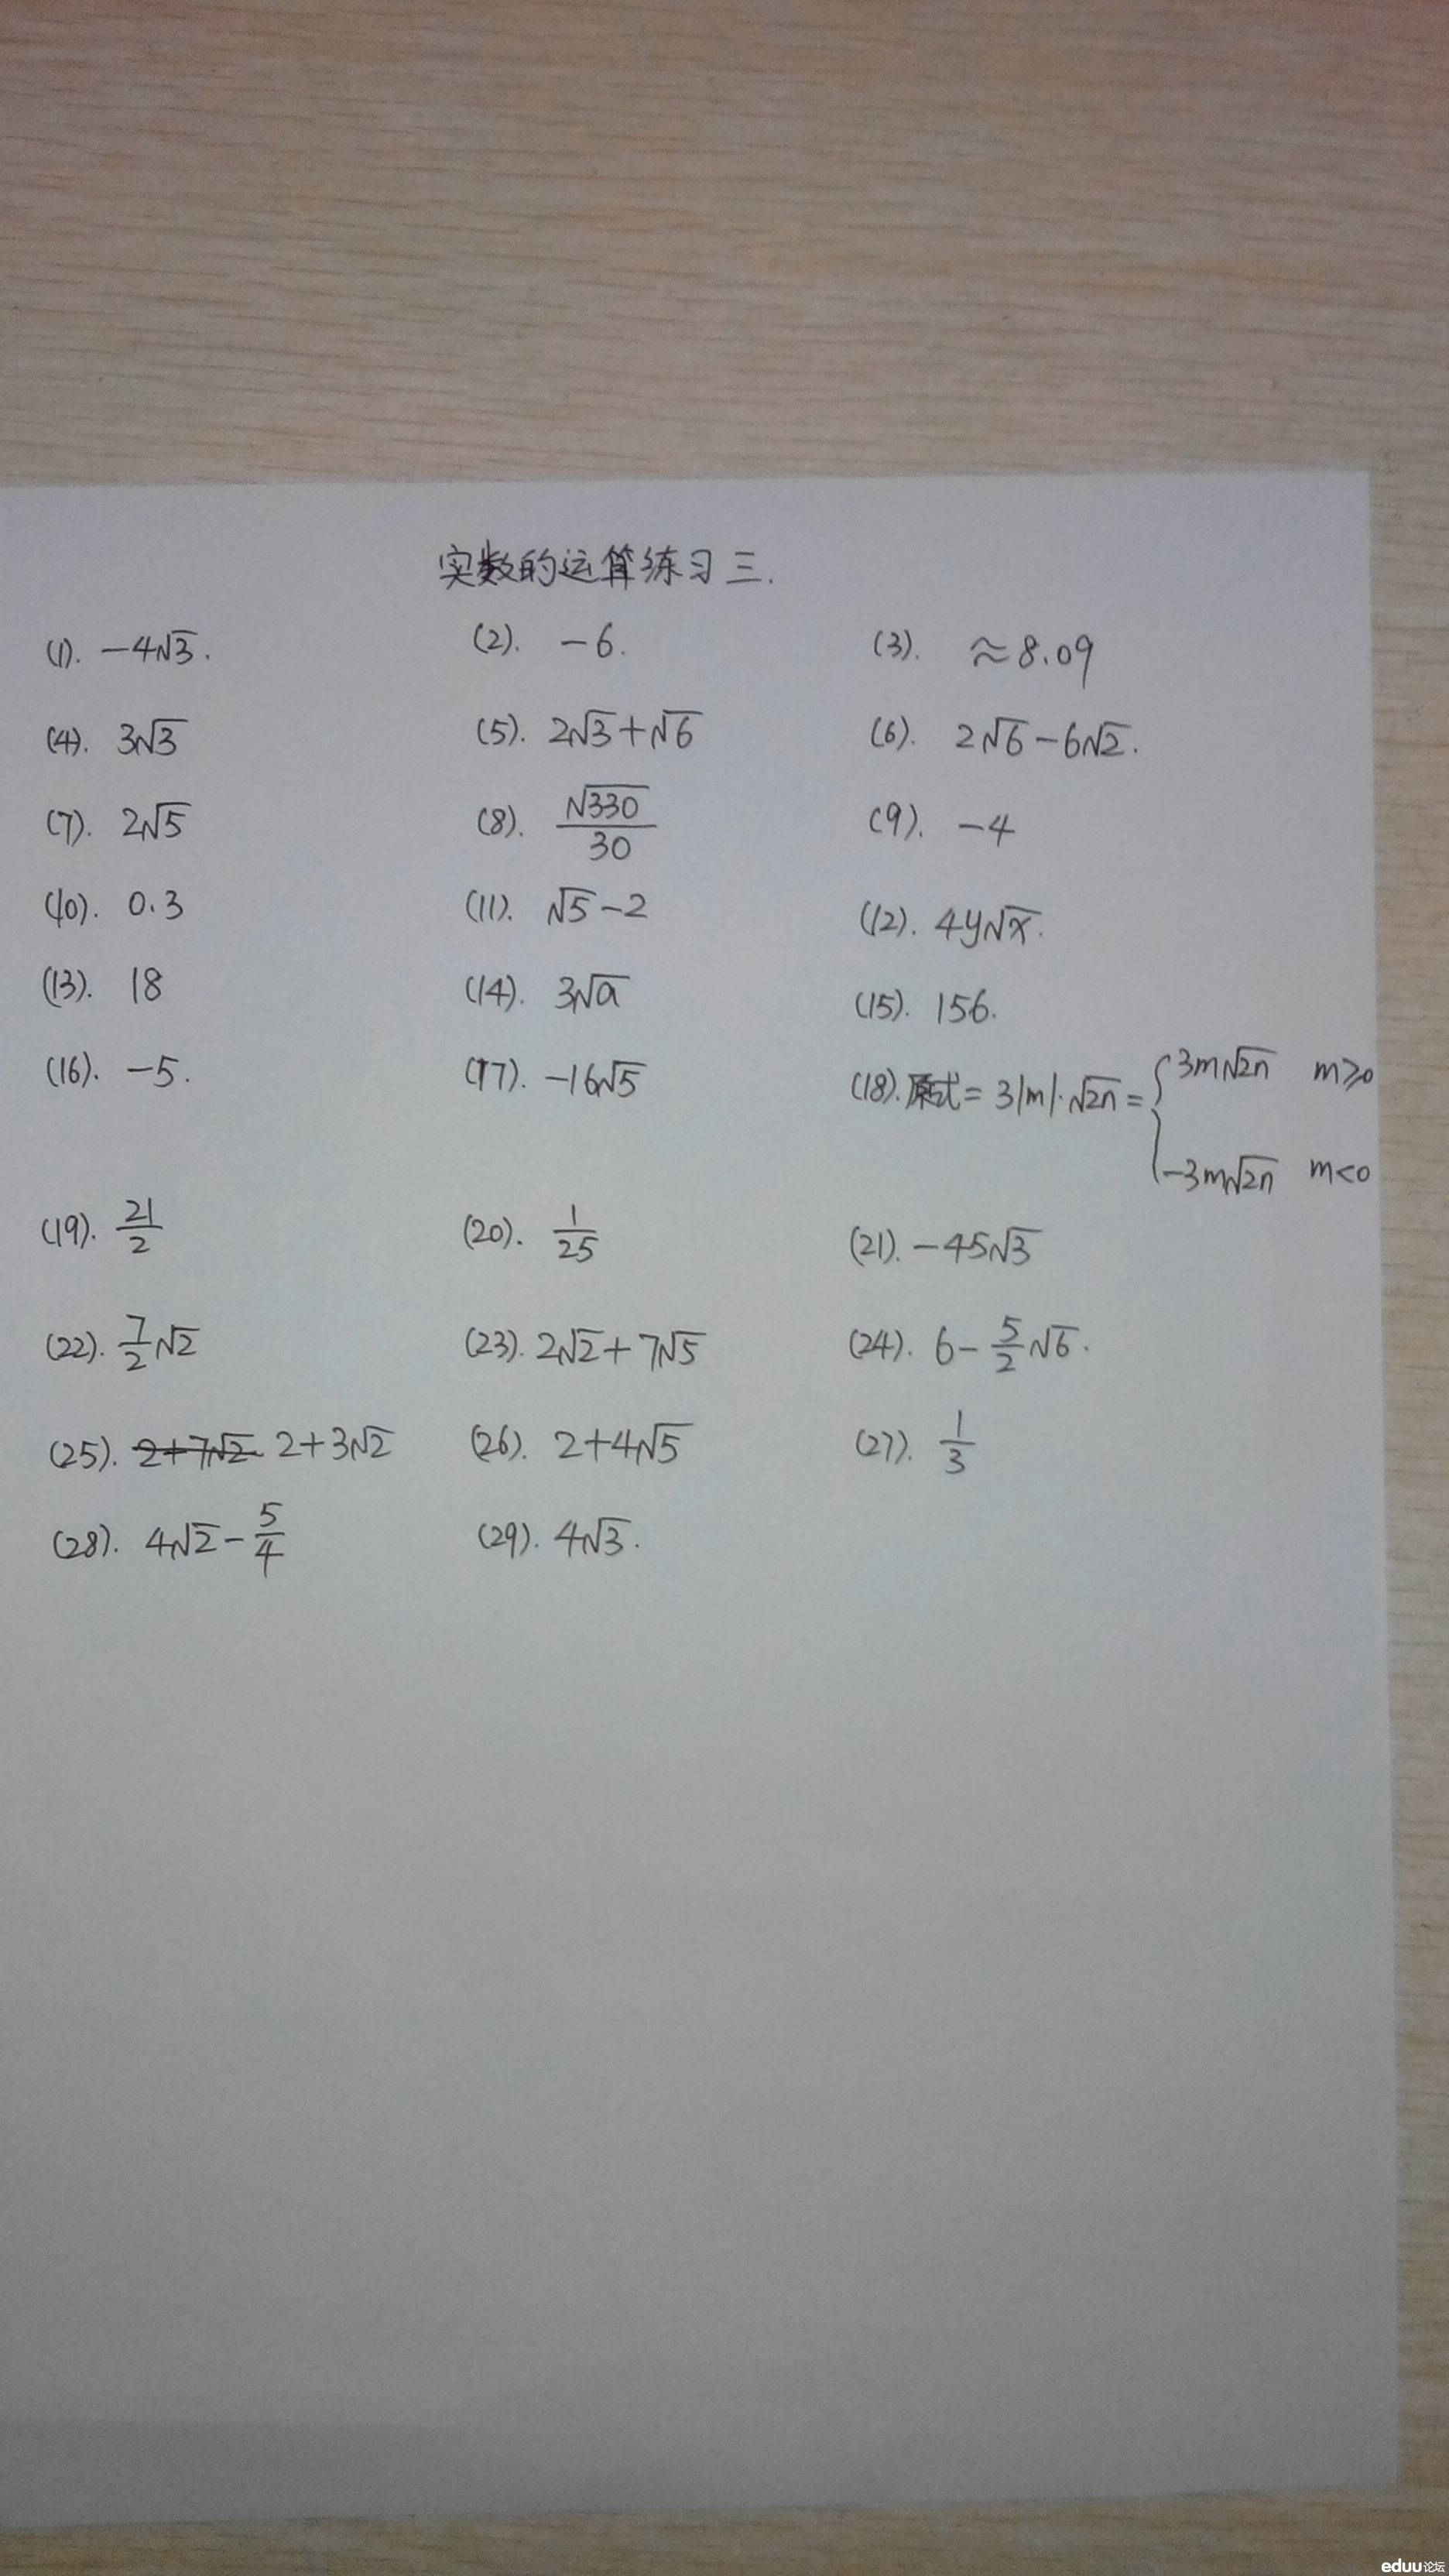 实数的运算练习三.
(1). -4√3. (2). -6. (3). ≈8.09
(4). 3√3 (5). 2√3+√6 (6). 2√6-6√2.
(7). 2√5 (8). √330/30 (9). -4
(10). 0.3 (11). √5-2 (12). 4y√x.
(13). 18 (14). 3√a (15). 156.
(16). -5. (17). -16√5 (18). 原式=3|m|·√2n={3m√2n m≥0
-3m√2n m<0
(19). 21/2 (20). 1/25 (21). -45√3
(22). 7/2√2 (23). 2√2+7√5 (24). 6-5/2√6.
(25). 2+7√2 2+3√2 (26). 2+4√5 (27). 1/3
(28). 4√2-5/4 (29). 4√3.
eduu论坛